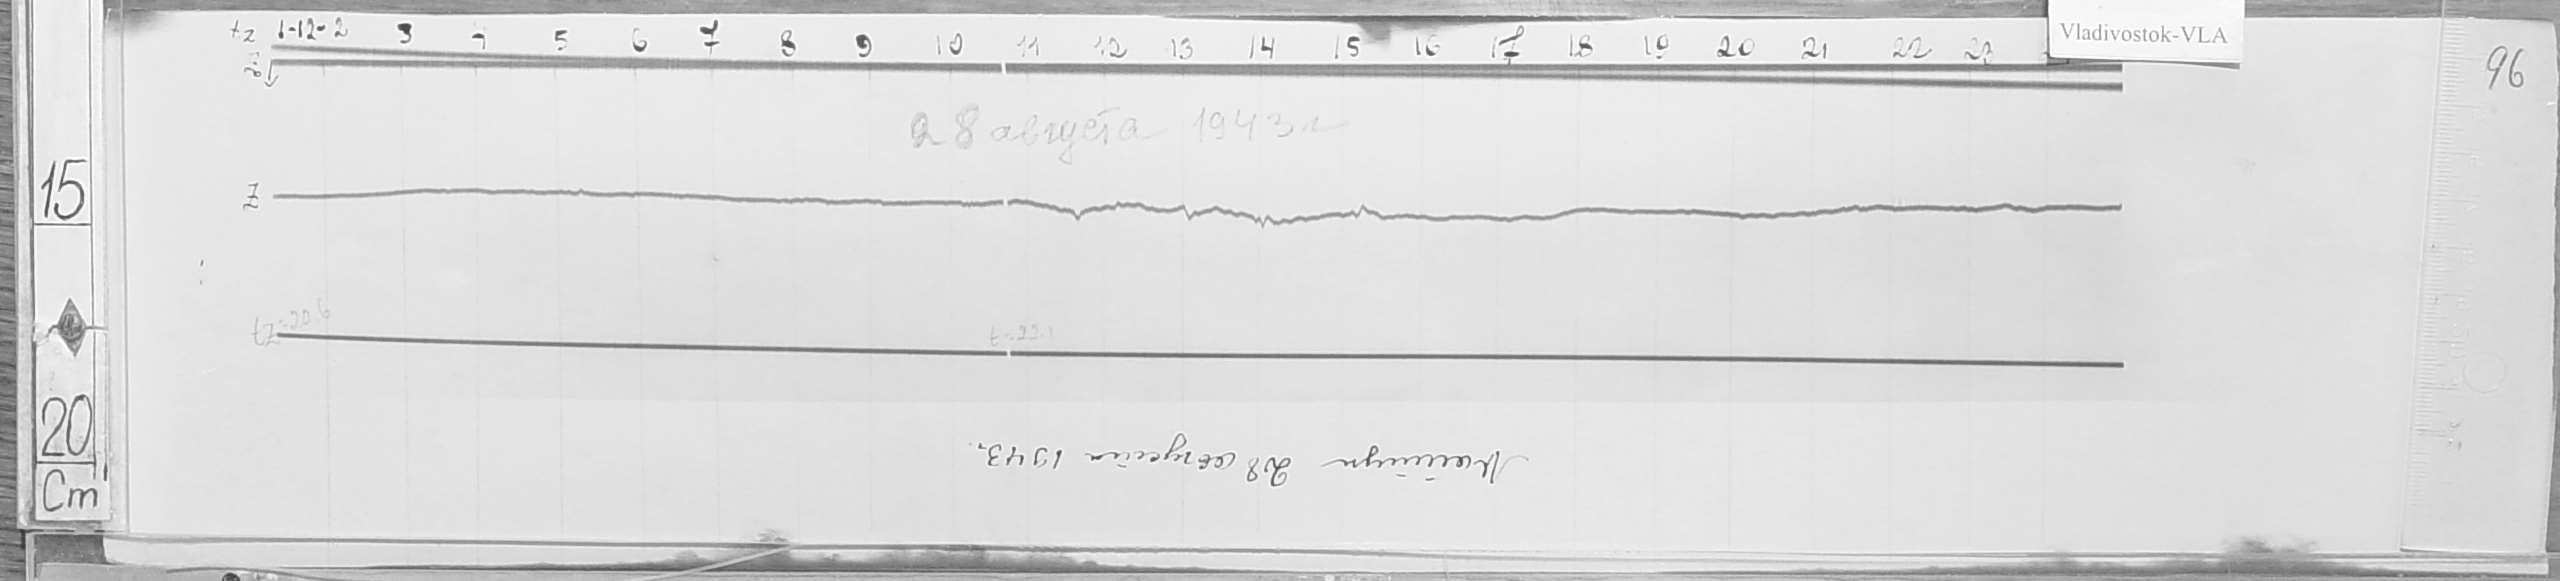 tz 1-12-2 3 4 5 6 7 8 9 10 11 12 13 14 15 16 17 18 19 20 21 22 23
Vladivostok-VLA
96
28 августа 1943 г
15
Z
tz=20.6
t=22.1
20
Cm
28 августа 1943г.